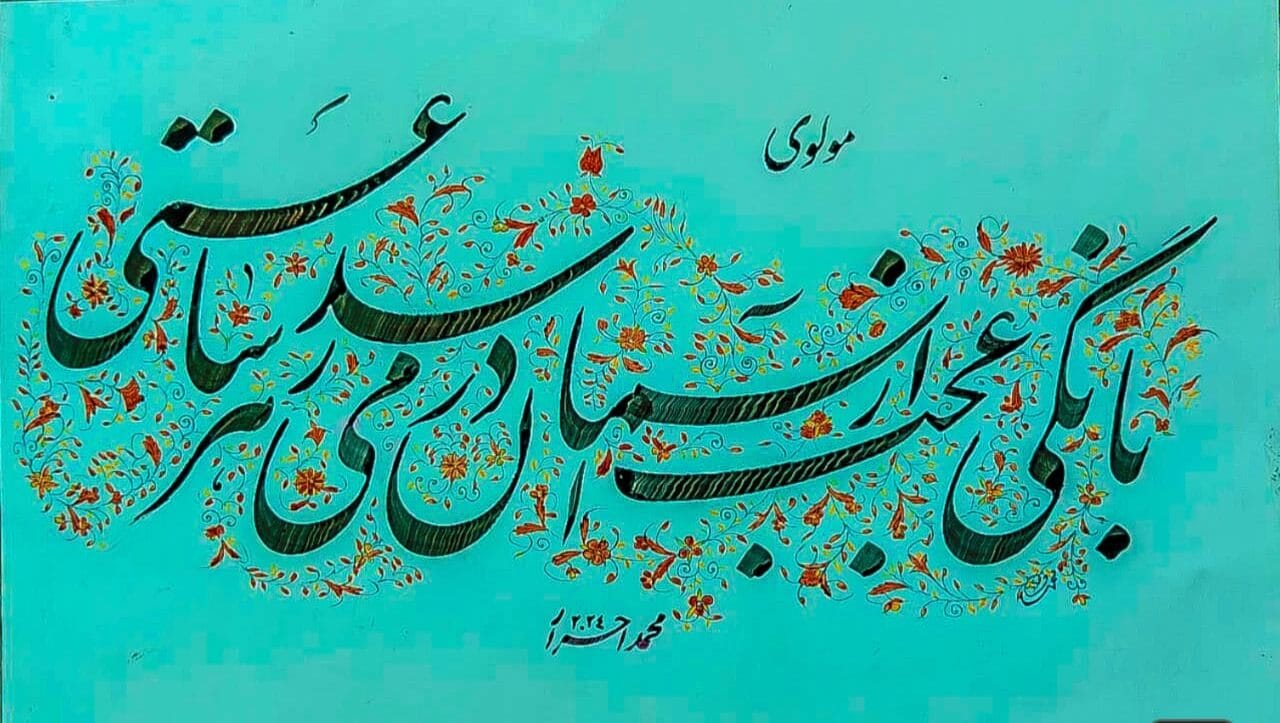 مولوی
بانگی عجب از آسمان در می رسد هر ساعتی
محمد احرار ۲۰۲٤